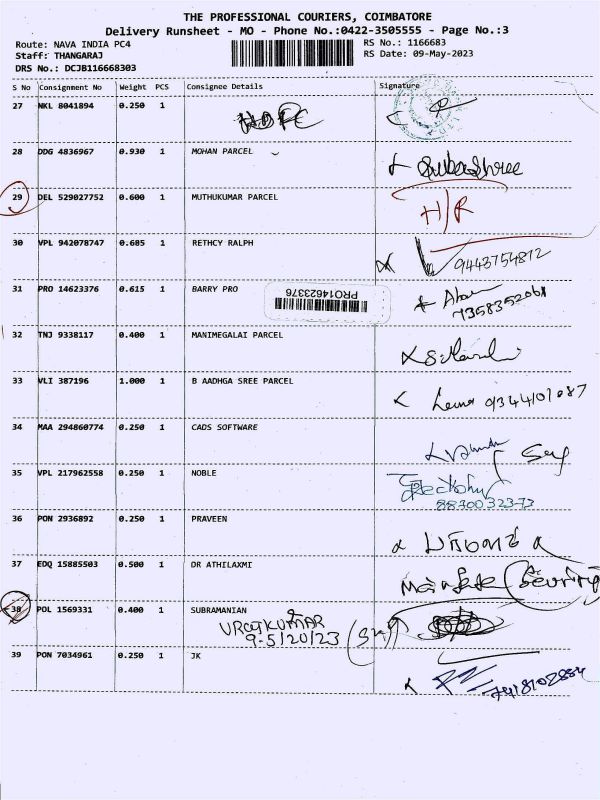 THE PROFESSIONAL COURIERS, COIMBATORE
Delivery Runsheet - MO - Phone No.:0422-3505555 - Page No.:3
Route: NAVA INDIA PC4
RS No.: 1166683
Staff: THANGARAJ
RS Date: 09-May-2023
DRS No.: DCJB116668303
S No Consignment No Weight PCS Consignee Details Signature
27 NKL 8041894 0.250 1
28 DDG 4836967 0.930 1 MOHAN PARCEL Subashree
29 DEL 529027752 0.600 1 MUTHUKUMAR PARCEL H/R
30 VPL 942078747 0.685 1 RETHCY RALPH 9443754812
31 PRO 14623376 0.615 1 BARRY PRO
PRO14623376
7358352061
32 TNJ 9338117 0.400 1 MANIMEGALAI PARCEL
33 VLI 387196 1.000 1 B AADHGA SREE PARCEL
34 MAA 294860774 0.250 1 CADS SOFTWARE
35 VPL 217962558 0.250 1 NOBLE
8830032373
36 PON 2936892 0.250 1 PRAVEEN
37 EDQ 15885503 0.500 1 DR ATHILAXMI
38 POL 1569331 0.400 1 SUBRAMANIAN
9-5/20/23
39 PON 7034961 0.250 1 JK